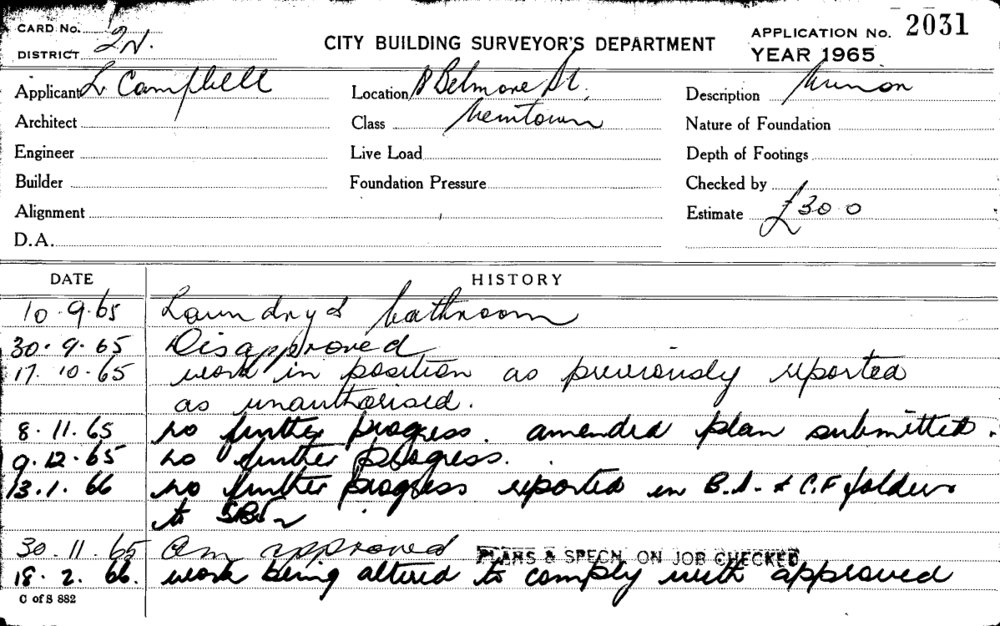 CARD No.
DISTRICT 2N.
CITY BUILDING SURVEYOR'S DEPARTMENT
APPLICATION No. 2031
YEAR 1965
Applicant L Campbell
Location 8 Belmore St.
Description Minor
Architect
Class Newtown
Nature of Foundation
Engineer
Live Load
Depth of Footings
Builder
Foundation Pressure
Checked by
Alignment
Estimate £300
D.A.
DATE HISTORY
10.9.65 Laundry & bathroom
30.9.65 Disapproved
17.10.65 work in position as previously reported
as unauthorised.
8.11.65 no further progress. amended plan submitted.
9.12.65 no further progress.
13.1.66 no further progress reported in B.A. & C.F folders
to
30.11.65 Am approved PLANS & SPECN. ON JOB CHECKED
18.2.66. work being altered to comply with approved
C of S 882